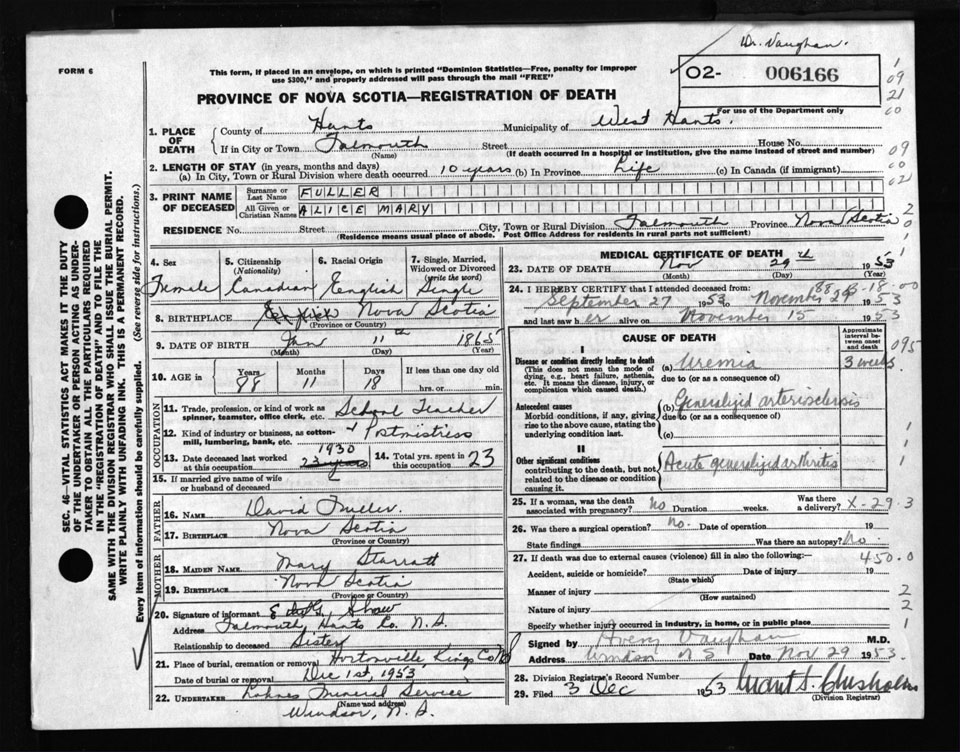 Dr. Vaughan.
FORM 6
This form, if placed in an envelope, on which is printed "Dominion Statistics—Free, penalty for improper
use $300," and properly addressed will pass through the mail "FREE"
02- 006166
For use of the Department only
PROVINCE OF NOVA SCOTIA—REGISTRATION OF DEATH
1. PLACE OF DEATH
County of Hants Municipality of West Hants.
If in City or Town Falmouth Street House No.
(Name) (If death occurred in a hospital or institution, give the name instead of street and number)
2. LENGTH OF STAY (in years, months and days)
(a) In City, Town or Rural Division where death occurred 10 years (b) In Province Life (c) In Canada (if immigrant)
3. PRINT NAME OF DECEASED
Surname or Last Name FULLER
All Given or Christian Names ALICE MARY
RESIDENCE No. Street City, Town or Rural Division Falmouth Province Nova Scotia
(Residence means usual place of abode. Post Office Address for residents in rural parts not sufficient)
4. Sex
Female
5. Citizenship
(Nationality)
Canadian
6. Racial Origin
English
7. Single, Married, Widowed or Divorced
(write the word)
Single
8. BIRTHPLACE Nova Scotia
(Province or Country)
9. DATE OF BIRTH Jan 11th 1865
(Month) (Day) (Year)
10. AGE in Years Months Days If less than one day old
88 11 18 hrs. or min.
OCCUPATION
11. Trade, profession, or kind of work as spinner, teamster, office clerk, etc. School Teacher
12. Kind of industry or business, as cotton-mill, lumbering, bank, etc. + Postmistress
13. Date deceased last worked at this occupation 1930 23 years
14. Total yrs. spent in this occupation 23
15. If married give name of wife or husband of deceased
FATHER
16. NAME David Fuller.
17. BIRTHPLACE Nova Scotia
(Province or Country)
MOTHER
18. MAIDEN NAME Mary Starratt
19. BIRTHPLACE Nova Scotia
(Province or Country)
20. Signature of informant Shaw
Address Falmouth, Hants Co. N.S.
Relationship to deceased Sister
21. Place of burial, cremation or removal Hortonville, Kings Co NS
Date of burial or removal Dec 1st, 1953
22. UNDERTAKER Funeral Service
(Name and address)
Windsor, N.S.
MEDICAL CERTIFICATE OF DEATH
23. DATE OF DEATH Nov 29th 1953
(Month) (Day) (Year)
24. I HEREBY CERTIFY that I attended deceased from:
September 27 1953 to November 29 1953
and last saw her alive on November 15 1953
CAUSE OF DEATH
Approximate interval between onset and death
I
Disease or condition directly leading to death
(This does not mean the mode of dying, e.g., heart failure, asthenia, etc. It means the disease, injury, or complication which caused death.)
(a) Uremia 3 weeks
due to (or as a consequence of)
Antecedent causes
Morbid conditions, if any, giving rise to the above cause, stating the underlying condition last.
(b) Generalized arteriosclerosis
due to (or as a consequence of)
(c)
II
Other significant conditions
contributing to the death, but not related to the disease or condition causing it.
Acute generalized arthritis
25. If a woman, was the death associated with pregnancy? No Duration weeks. Was there a delivery? X-29-3
26. Was there a surgical operation? no. Date of operation 19
State findings Was there an autopsy? No.
27. If death was due to external causes (violence) fill in also the following:— 450.0
Accident, suicide or homicide? Date of injury 19
(State which)
Manner of injury
(How sustained)
Nature of injury
Specify whether injury occurred in industry, in home, or in public place
Signed by Avery Vaughan M.D.
Address Windsor N S Date Nov 29 1953.
28. Division Registrar's Record Number
29. Filed 3 Dec 1953 Chisholm
(Division Registrar)
SEC. 46—VITAL STATISTICS ACT MAKES IT THE DUTY
OF THE UNDERTAKER OR PERSON ACTING AS UNDER-
TAKER TO OBTAIN ALL THE PARTICULARS REQUIRED
IN THE "REGISTRATION OF DEATH" AND TO FILE THE
SAME WITH THE DIVISION REGISTRAR WHO SHALL ISSUE THE BURIAL PERMIT.
WRITE PLAINLY WITH UNFADING INK. THIS IS A PERMANENT RECORD.
Every item of information should be carefully supplied. (See reverse side for instructions.)
1
09
21
00
09
00
02
2
0
1
095
1
1
1
2
2
1